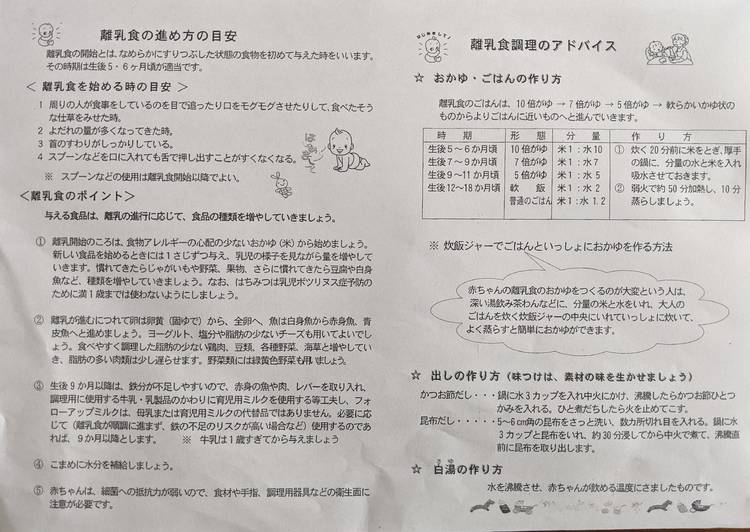 離乳食の進め方の目安
離乳食の開始とは、なめらかにすりつぶした状態の食物を初めて与えた時をいいます。
その時期は生後5・6ヶ月頃が適当です。
< 離乳食を始める時の目安 >
1 周りの人が食事をしているのを目で追ったり口をモグモグさせたりして、食べたそう
な仕草をみせた時。
2 よだれの量が多くなってきた時。
3 首のすわりがしっかりしている。
4 スプーンなどを口に入れても舌で押し出すことがすくなくなる。
※ スプーンなどの使用は離乳食開始以降でよい。
<離乳食のポイント>
与える食品は、離乳の進行に応じて、食品の種類を増やしていきましょう。
① 離乳開始のころは、食物アレルギーの心配の少ないおかゆ(米)から始めましょう。
新しい食品を始めるときには1さじずつ与え、乳児の様子を見ながら量を増やして
いきます。慣れてきたらじゃがいもや野菜、果物、さらに慣れてきたら豆腐や白身
魚など、種類を増やしていきましょう。なお、はちみつは乳児ボツリヌス症予防の
ために満1歳までは使わないようにしましょう。
② 離乳が進むにつれて卵は卵黄(固ゆで)から、全卵へ、魚は白身魚から赤身魚、青
皮魚へと進めましょう。ヨーグルト、塩分や脂肪の少ないチーズも用いてよいでし
ょう。食べやすく調理した脂肪の少ない鶏肉、豆類、各種野菜、海草と増やしてい
き、脂肪の多い肉類は少し遅らせます。野菜類には緑黄色野菜も用いましょう。
③ 生後9か月以降は、鉄分が不足しやすいので、赤身の魚や肉、レバーを取り入れ、
調理用に使用する牛乳・乳製品のかわりに育児用ミルクを使用する等工夫し、フォ
ローアップミルクは、母乳または育児用ミルクの代替品ではありません。必要に応
じて(離乳食が順調に進まず、鉄の不足のリスクが高い場合など)使用するのであ
れば、9か月以降とします。 ※ 牛乳は1歳すぎてから与えましょう
④ こまめに水分を補給しましょう。
⑤ 赤ちゃんは、細菌への抵抗力が弱いので、食材や手指、調理用器具などの衛生面に
注意が必要です。
はじめまして!
離乳食調理のアドバイス
☆ おかゆ・ごはんの作り方
離乳食のごはんは、10倍がゆ → 7倍がゆ → 5倍がゆ → 軟らかいかゆ状の
ものからよりごはんに近いものへと進んでいきます。
時期 形態 分量 作り方
生後5～6か月頃 10倍がゆ 米1:水10 ① 炊く20分前に米をとぎ、厚手
生後7～9か月頃 7倍がゆ 米1:水7 の鍋に、分量の水と米を入れ
生後9～11か月頃 5倍がゆ 米1:水5 吸水させておきます。
生後12～18か月頃 軟飯 米1:水2 ② 弱火で約50分加熱し、10分
普通のごはん 米1:水1.2 蒸らしましょう。
※ 炊飯ジャーでごはんといっしょにおかゆを作る方法
赤ちゃんの離乳食のおかゆをつくるのが大変という人は、
深い湯飲み茶わんなどに、分量の米と水をいれ、大人の
ごはんを炊く炊飯ジャーの中央にいれていっしょに炊いて、
よく蒸らすと簡単におかゆができます。
☆ 出しの作り方 (味つけは、素材の味を生かせましょう)
かつお節だし・・・鍋に水3カップを入れ中火にかけ、沸騰したらかつお節ひとつ
かみを入れる。ひと煮だちしたら火を止めてこす。
昆布だし・・・・・5～6cm角の昆布をさっと洗い、数カ所切れ目を入れる。鍋に水
3カップと昆布をいれ、約30分浸してから中火で煮て、沸騰直
前に昆布を取り出します。
☆ 白湯の作り方
さゆ
水を沸騰させ、赤ちゃんが飲める温度にさましたものです。